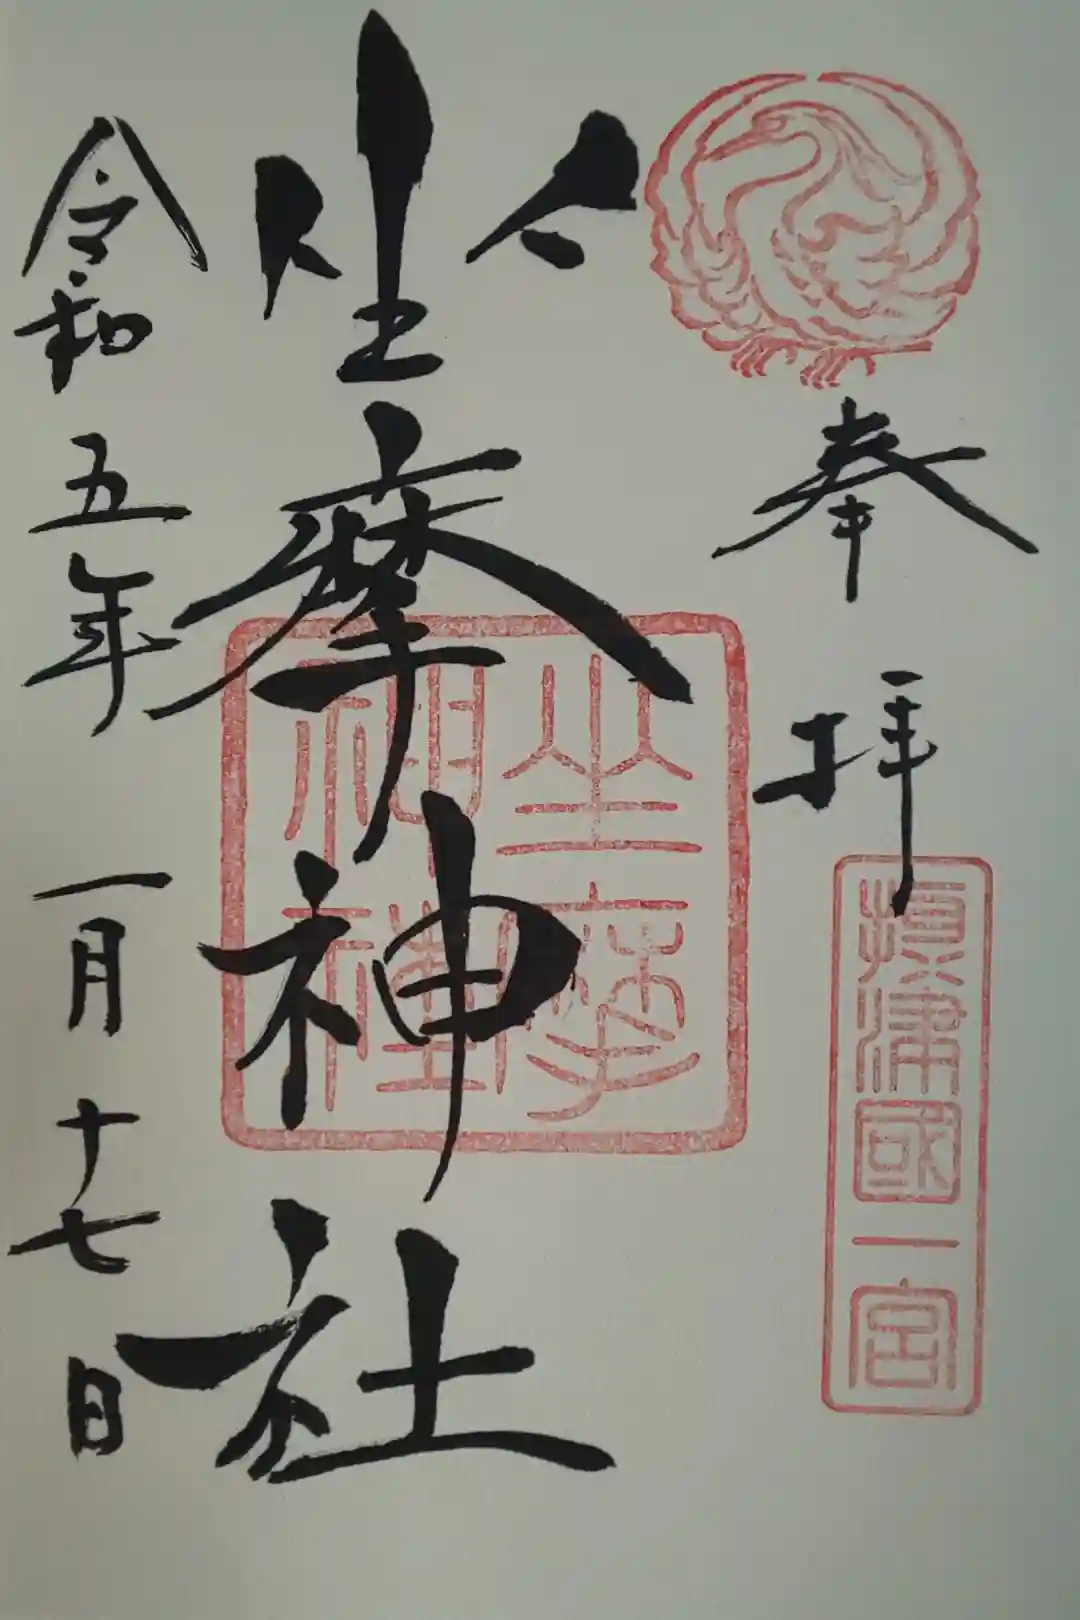 奉拝
攝津國一宮
坐摩神社
坐摩神社
令和五年一月十七日